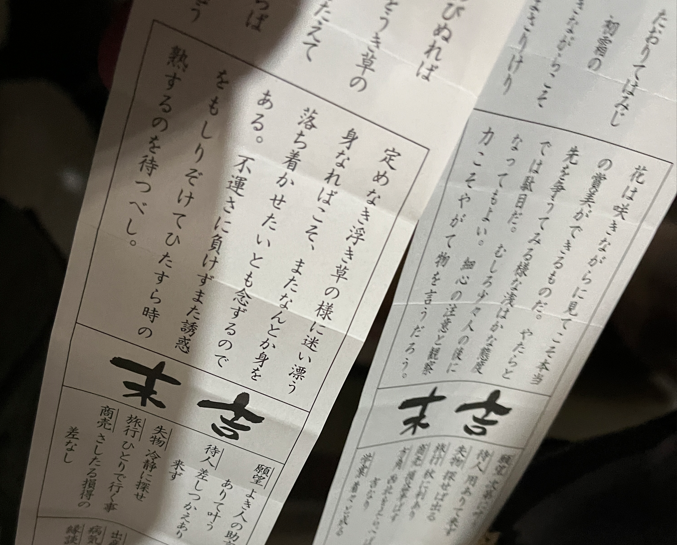 たおりてはみじ
初霜の
きながらこそ
まさりけり
花は咲きながらに見てこそ本当
の賞美ができるものだ。やたらと
先を争うてみる様な浅はかな態度
では駄目だ。むしろ少々人の後に
なってもよい。細心の注意と観察
力こそやがて物を言うだろう。
末吉
願望
待人 用ありて来ず
失物 探せば出る
旅行 秋に利あり
商売
方角
びぬれば
をうき草の
たえて
らば
定めなき浮き草の様に迷い漂う
身なればこそ、またなんとか身を
落ち着かせたいとも念ずるので
ある。不運さに負けずまた誘惑
をもしりぞけてひたすら時の
熟するのを待つべし。
末吉
願望 よき人の助
ありて叶う
待人 差しつかえあり
来ず
失物 冷静に探せ
旅行 ひとりで行く事
商売 さしたる損得の
差なし